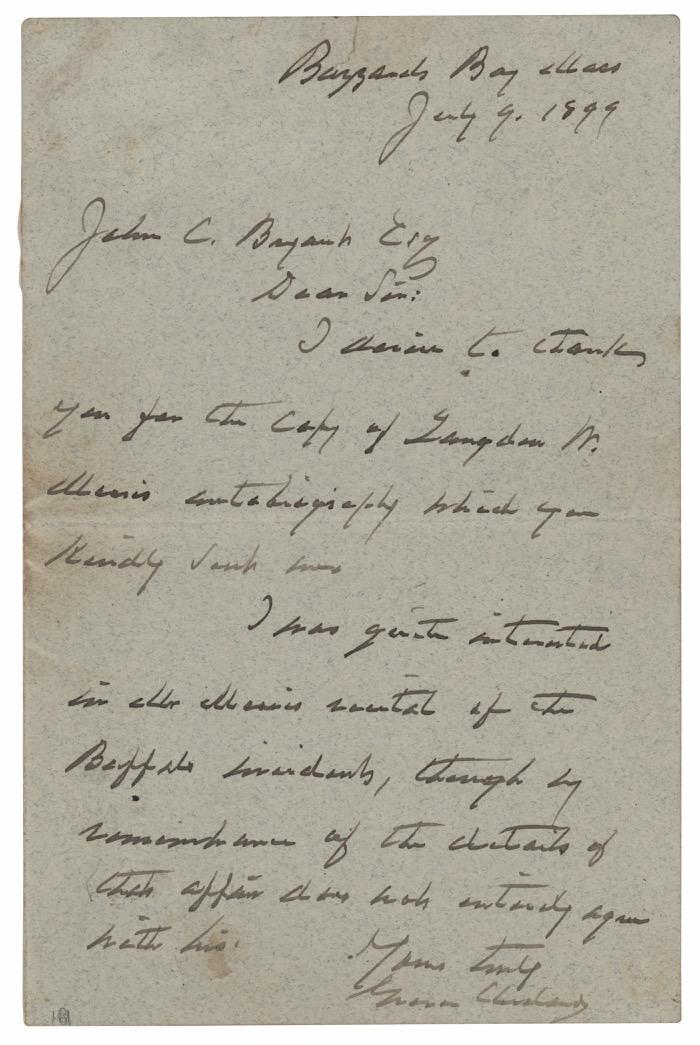 Buzzards Bay Mass
July 9. 1899
John C. Bryant Esq
Dear Sir:
I desire to thank
you for the copy of Langdon W.
Moores autobiography which you
kindly sent me
I was quite interested
in Mr Moores recital of the
Buffalo incidents, though my
remembrance of the details of
that affair does not entirely agree
with his.
Yours truly
Grover Cleveland